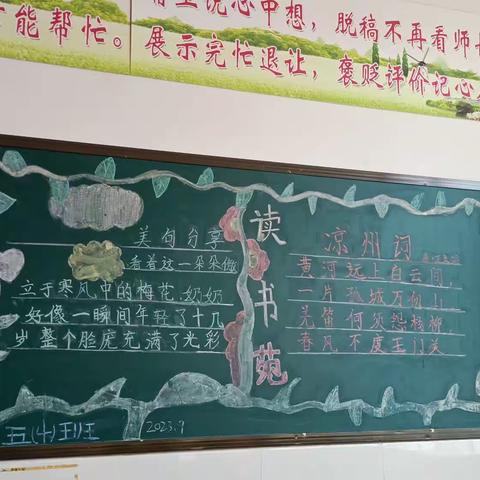 能帮忙。
说心中想,脱稿不再看师
展示完忙退让,褒贬评价记心
美句分享
看着这一朵朵傲
立于寒风中的梅花,奶奶
好像一瞬间年轻了十几
岁整个脸庞充满了光彩
读书苑
凉州词
黄河远上白云间,
一片孤城万仞山。
羌笛何须怨杨柳,
春风不度玉门关
五(4)班
2023.9